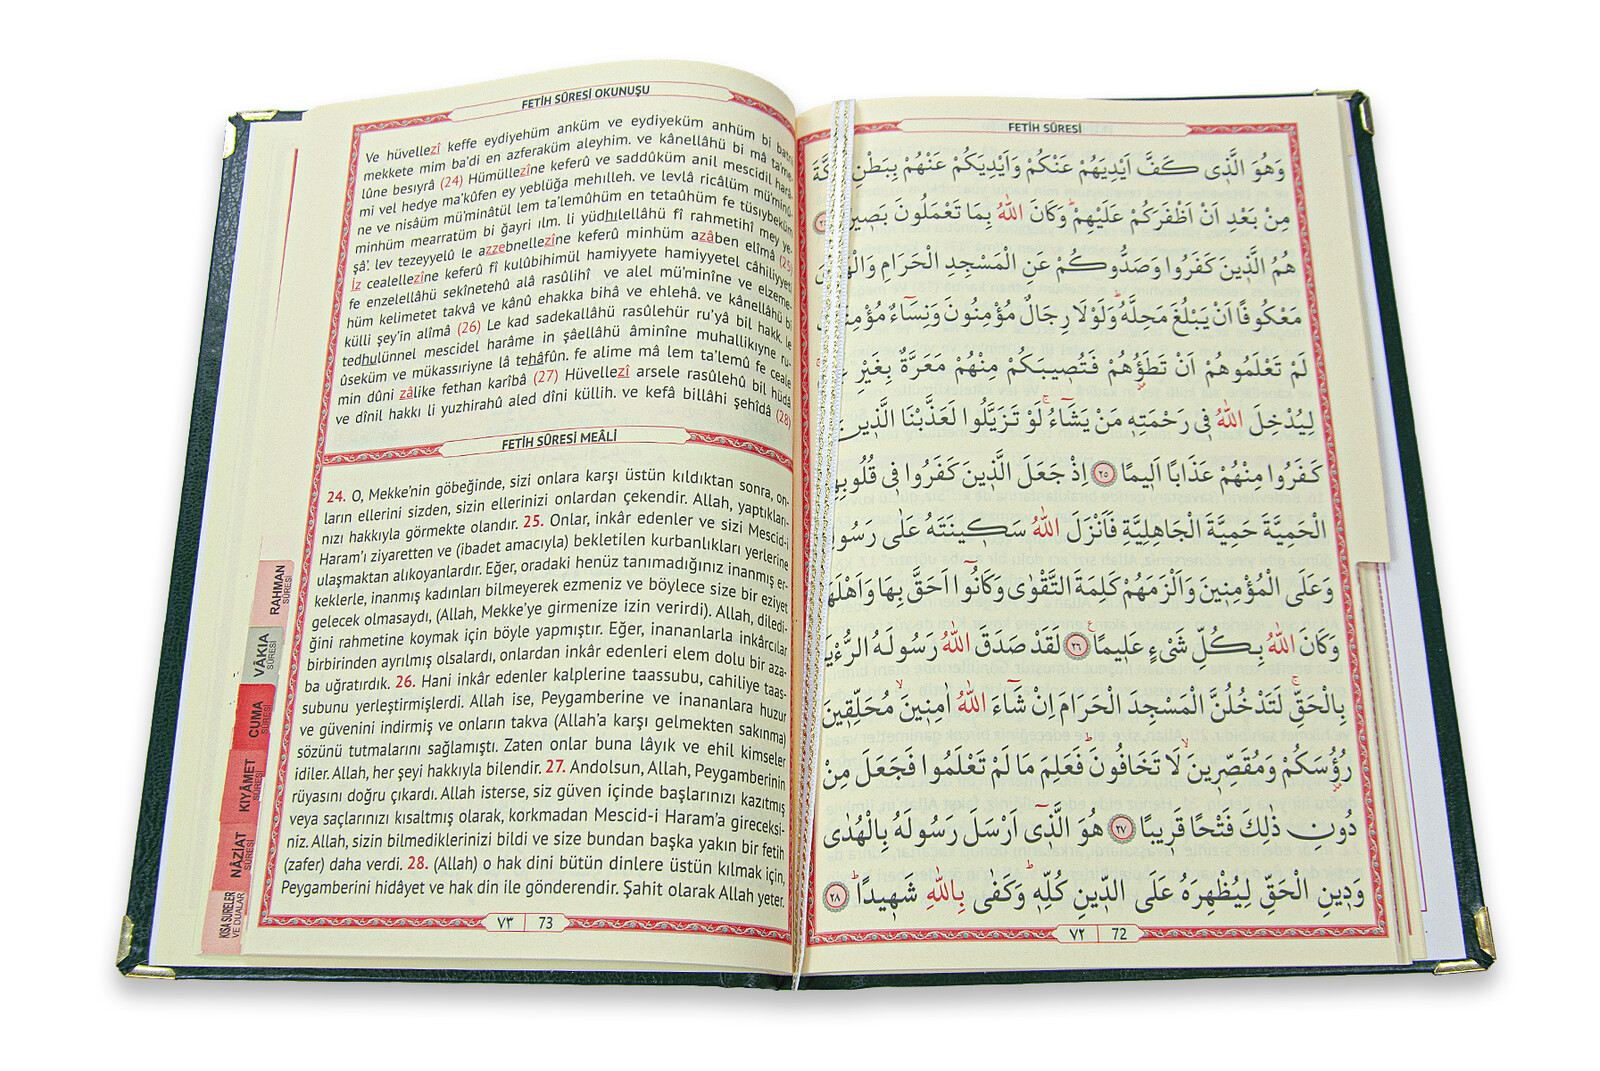 FETİH SÛRESİ OKUNUŞU
Ve hüvellezî keffe eydiyehüm anküm ve eydiyeküm anhüm bi batni
mekkete mim ba'di en azferaküm aleyhim. ve kânellâhü bi mâ ta'me-
lûne besıyrâ (24) Hümüllezîne keferû ve saddûküm anil mescidil harâ-
mi vel hedye ma'kûfen ey yeblüğa mehılleh. ve levlâ ricâlüm mü'minû-
ne ve nisâüm mü'minâtül lem ta'lemûhüm en tetaûhüm fe tüsıybeküm
minhüm mearratüm bi ğayri ılm. li yüdhılellâhü fî rahmetihî mey ye-
şâ'. lev tezeyyelû le azzebnellezîne keferû minhüm azâben elîmâ (25)
İz cealellezîne keferû fî kulûbihimül hamiyyete hamiyyetel câhiliyyeti
fe enzelellâhü sekînetehû alâ rasûlihî ve alel mü'minîne ve elzeme-
hüm kelimetet takvâ ve kânû ehakka bihâ ve ehlehâ. ve kânellâhü bi
külli şey'in alîmâ (26) Le kad sadekallâhü rasûlehür ru'yâ bil hakk. le
tedhulünnel mescidel harâme in şâellâhü âminîne muhallikıyne ru-
ûseküm ve mükassıriyne lâ tehâfûn. fe alime mâ lem ta'lemû fe ceale
min dûni zâlike fethan karîbâ (27) Hüvellezî arsele rasûlehû bil hüdâ
ve dînil hakkı li yuzhirahû aled dîni küllih. ve kefâ billâhi şehîdâ (28)
FETİH SÛRESİ MEÂLİ
24. O, Mekke'nin göbeğinde, sizi onlara karşı üstün kıldıktan sonra, on-
ların ellerini sizden, sizin ellerinizi onlardan çekendir. Allah, yaptıkları-
nızı hakkıyla görmekte olandır. 25. Onlar, inkâr edenler ve sizi Mescid-i
Haram'ı ziyaretten ve (ibadet amacıyla) bekletilen kurbanlıkları yerlerine
ulaşmaktan alıkoyanlardır. Eğer, oradaki henüz tanımadığınız inanmış er-
keklerle, inanmış kadınları bilmeyerek ezmeniz ve böylece size bir eziyet
gelecek olmasaydı, (Allah, Mekke'ye girmenize izin verirdi). Allah, diledi-
ğini rahmetine koymak için böyle yapmıştır. Eğer, inananlarla inkârcılar
birbirinden ayrılmış olsalardı, onlardan inkâr edenleri elem dolu bir aza-
ba uğratırdık. 26. Hani inkâr edenler kalplerine taassubu, cahiliye taas-
subunu yerleştirmişlerdi. Allah ise, Peygamberine ve inananlara huzur
ve güvenini indirmiş ve onların takva (Allah'a karşı gelmekten sakınma)
sözünü tutmalarını sağlamıştı. Zaten onlar buna lâyık ve ehil kimseler
idiler. Allah, her şeyi hakkıyla bilendir. 27. Andolsun, Allah, Peygamberinin
rüyasını doğru çıkardı. Allah isterse, siz güven içinde başlarınızı kazıtmış
veya saçlarınızı kısaltmış olarak, korkmadan Mescid-i Haram'a gireceksi-
niz. Allah, sizin bilmediklerinizi bildi ve size bundan başka yakın bir fetih
(zafer) daha verdi. 28. (Allah) o hak dini bütün dinlere üstün kılmak için,
Peygamberini hidâyet ve hak din ile gönderendir. Şahit olarak Allah yeter.
٧٣ 73
RAHMAN SÛRESİ
VÂKIA SÛRESİ
CUMA SÛRESİ
KIYÂMET SÛRESİ
NÂZİAT SÛRESİ
KISA SÛRELER VE DUALAR
FETİH SÛRESİ
وَهُوَ الَّذٖى كَفَّ اَيْدِيَهُمْ عَنْكُمْ وَاَيْدِيَكُمْ عَنْهُمْ بِبَطْنِ
مِنْ بَعْدِ اَنْ اَظْفَرَكُمْ عَلَيْهِمْ وَكَانَ اللّٰهُ بِمَا تَعْمَلُونَ بَصٖيرًا
هُمُ الَّذٖينَ كَفَرُوا وَصَدُّوكُمْ عَنِ الْمَسْجِدِ الْحَرَامِ
مَعْكُوفًا اَنْ يَبْلُغَ مَحِلَّهُ وَلَوْلَا رِجَالٌ مُؤْمِنُونَ وَنِسَٓاءٌ
لَمْ تَعْلَمُوهُمْ اَنْ تَطَؤُهُمْ فَتُصٖيبَكُمْ مِنْهُمْ مَعَرَّةٌ بِغَيْرِ
لِيُدْخِلَ اللّٰهُ فٖى رَحْمَتِهٖ مَنْ يَشَٓاءُ لَوْ تَزَيَّلُوا لَعَذَّبْنَا الَّذٖينَ
كَفَرُوا مِنْهُمْ عَذَابًا اَلٖيمًا ٢٥ اِذْ جَعَلَ الَّذٖينَ كَفَرُوا فٖى
الْحَمِيَّةَ حَمِيَّةَ الْجَاهِلِيَّةِ فَاَنْزَلَ اللّٰهُ سَكٖينَتَهُ عَلٰى
وَعَلَى الْمُؤْمِنٖينَ وَاَلْزَمَهُمْ كَلِمَةَ التَّقْوٰى وَكَانُٓوا اَحَقَّ بِهَا وَاَهْلَهَا
وَكَانَ اللّٰهُ بِكُلِّ شَىْءٍ عَلٖيمًا ٢٦ لَقَدْ صَدَقَ اللّٰهُ رَسُولَهُ الرُّءْيَا
بِالْحَقِّ لَتَدْخُلُنَّ الْمَسْجِدَ الْحَرَامَ اِنْ شَٓاءَ اللّٰهُ اٰمِنٖينَ مُحَلِّقٖينَ
رُؤُسَكُمْ وَمُقَصِّرٖينَ لَا تَخَافُونَ فَعَلِمَ مَا لَمْ تَعْلَمُوا فَجَعَلَ مِنْ
دُونِ ذٰلِكَ فَتْحًا قَرٖيبًا ٢٧ هُوَ الَّذٖٓى اَرْسَلَ رَسُولَهُ بِالْهُدٰى
وَدٖينِ الْحَقِّ لِيُظْهِرَهُ عَلَى الدّٖينِ كُلِّهٖ وَكَفٰى بِاللّٰهِ شَهٖيدًا ٢٨
٧٢ 72